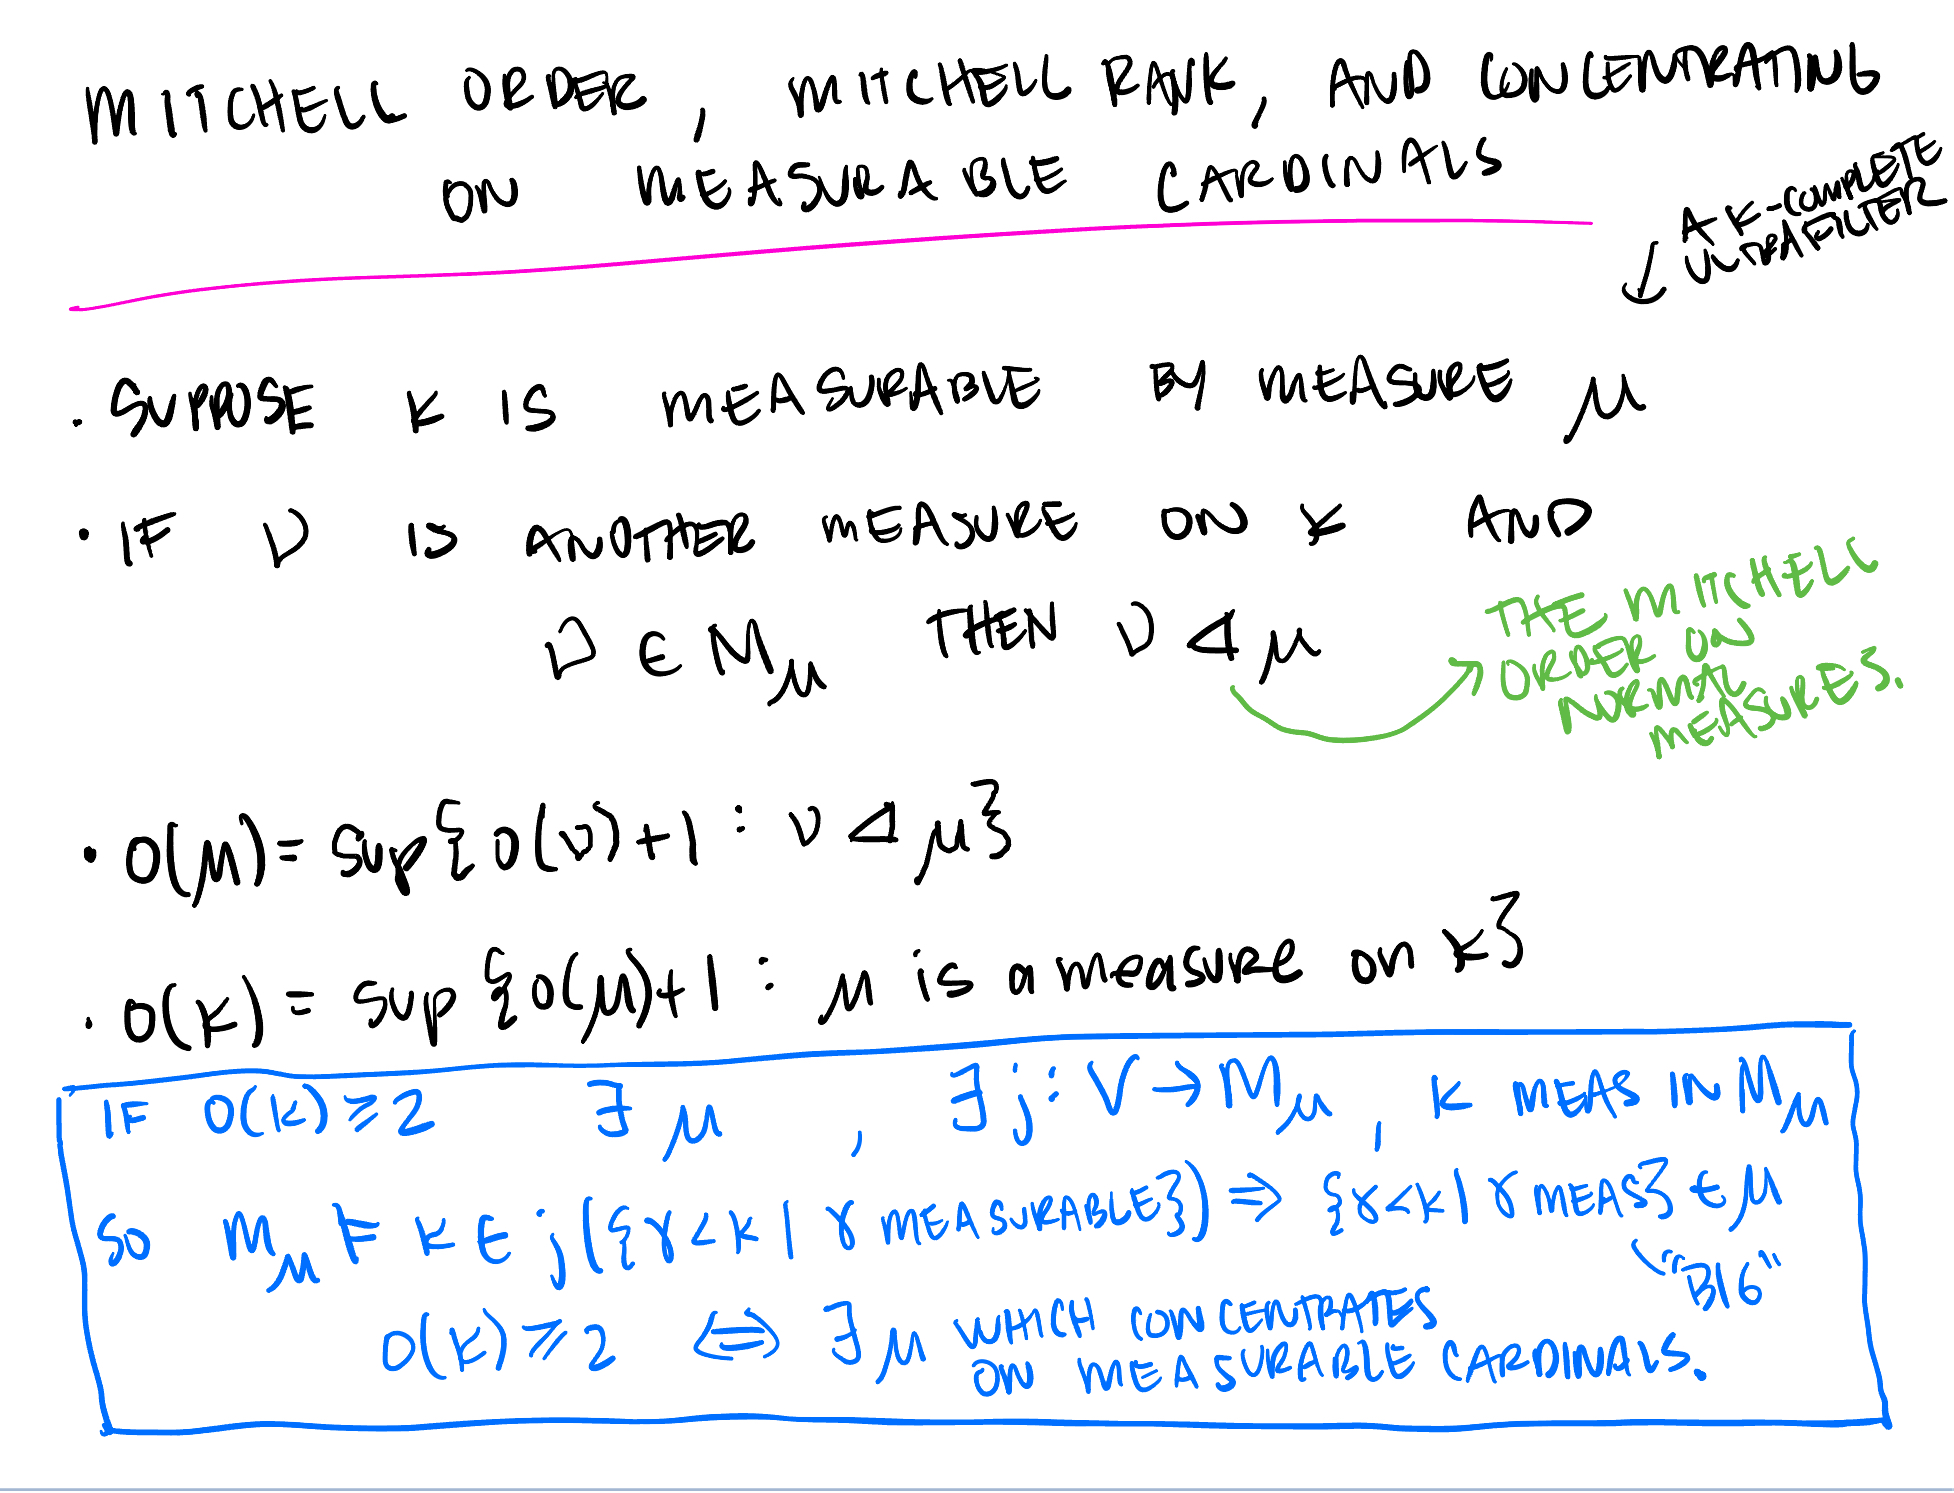 MITCHELL ORDER, MITCHELL RANK, AND CONCENTRATING
ON MEASURABLE CARDINALS
A κ-COMPLETE
ULTRAFILTER
• SUPPOSE κ IS MEASURABLE BY MEASURE μ
• IF ν IS ANOTHER MEASURE ON κ AND
ν ∈ M_μ THEN ν ⊲ μ
THE MITCHELL
ORDER ON
NORMAL
MEASURES.
• O(μ) = sup{o(ν)+1 : ν ⊲ μ}
• O(κ) = sup {o(μ)+1 : μ is a measure on κ}
IF O(κ) ≥ 2 ∃ μ , ∃ j : V → M_μ , κ MEAS IN M_μ
SO M_μ ⊨ κ ∈ j({γ<κ | γ MEASURABLE}) ⇒ {γ<κ | γ MEAS} ∈ μ
"BIG"
O(κ) ≥ 2 ⟺ ∃ μ WHICH CONCENTRATES
ON MEASURABLE CARDINALS.